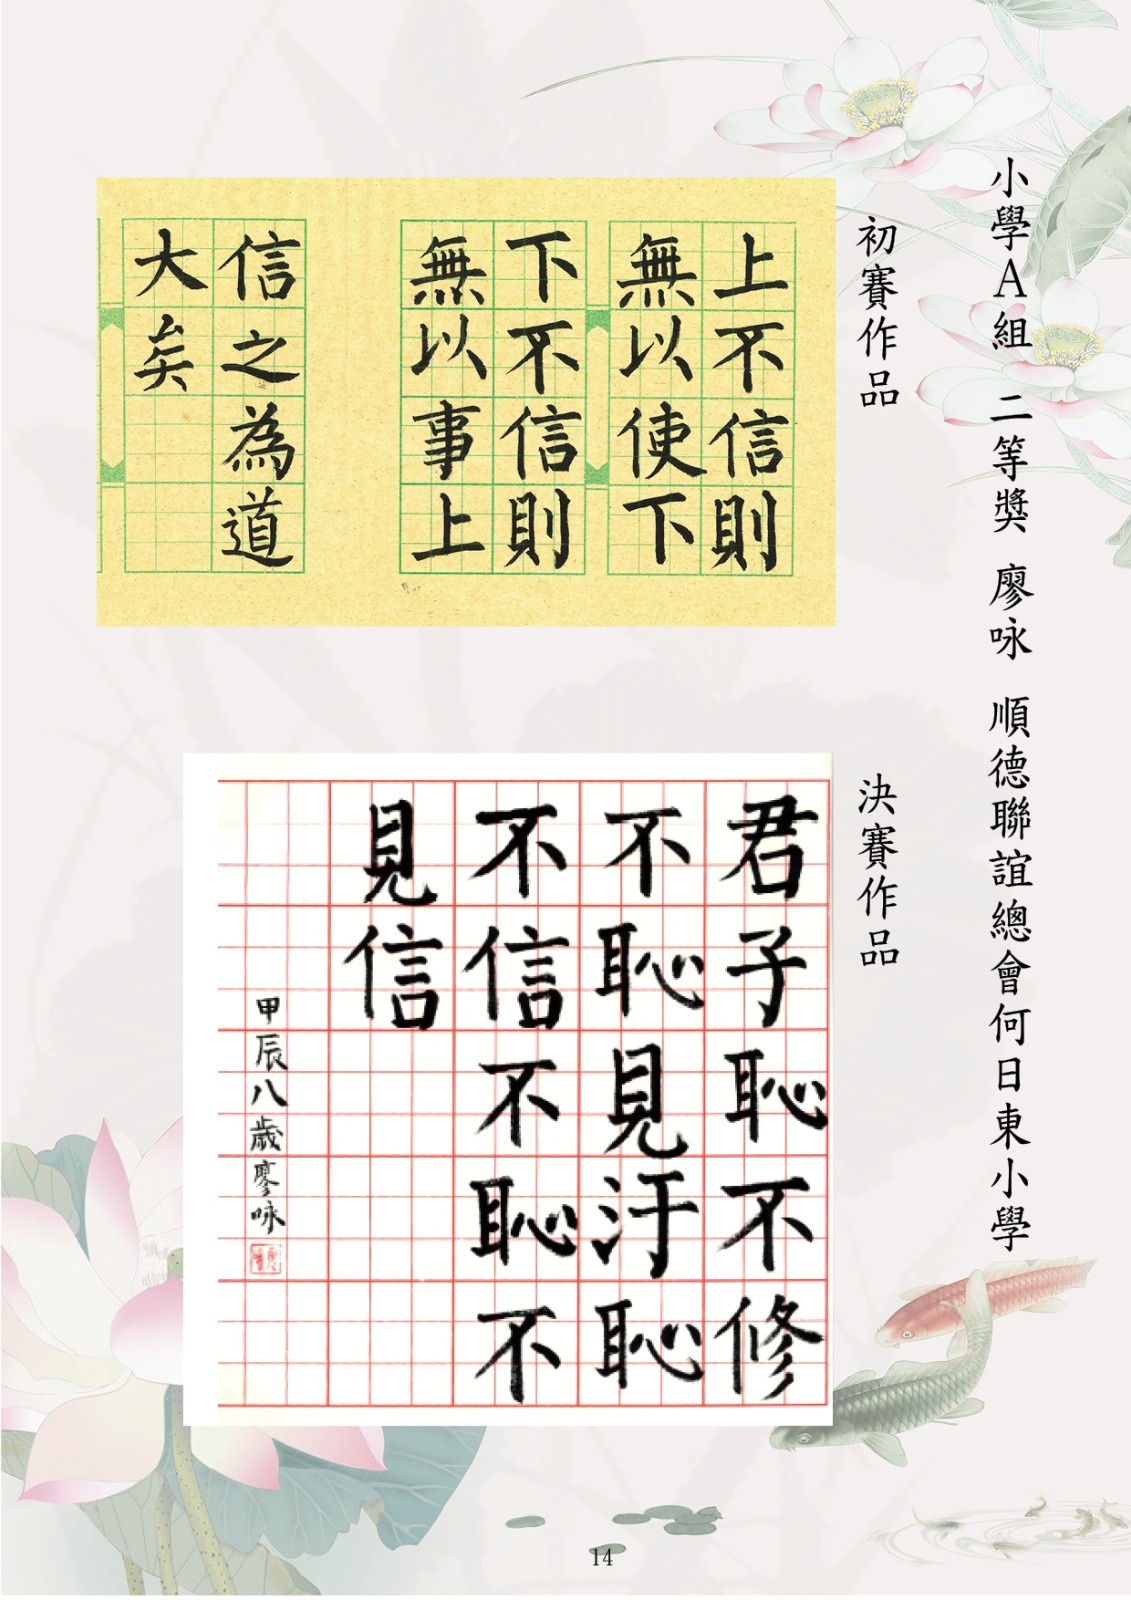 小學A組 二等獎 廖咏 順德聯誼總會何日東小學
初賽作品
上不信則
無以使下
下不信則
無以事上
信之為道
大矣
決賽作品
君子恥不修
不恥見汙恥
不信不恥不
見信
甲辰八歲廖咏
14